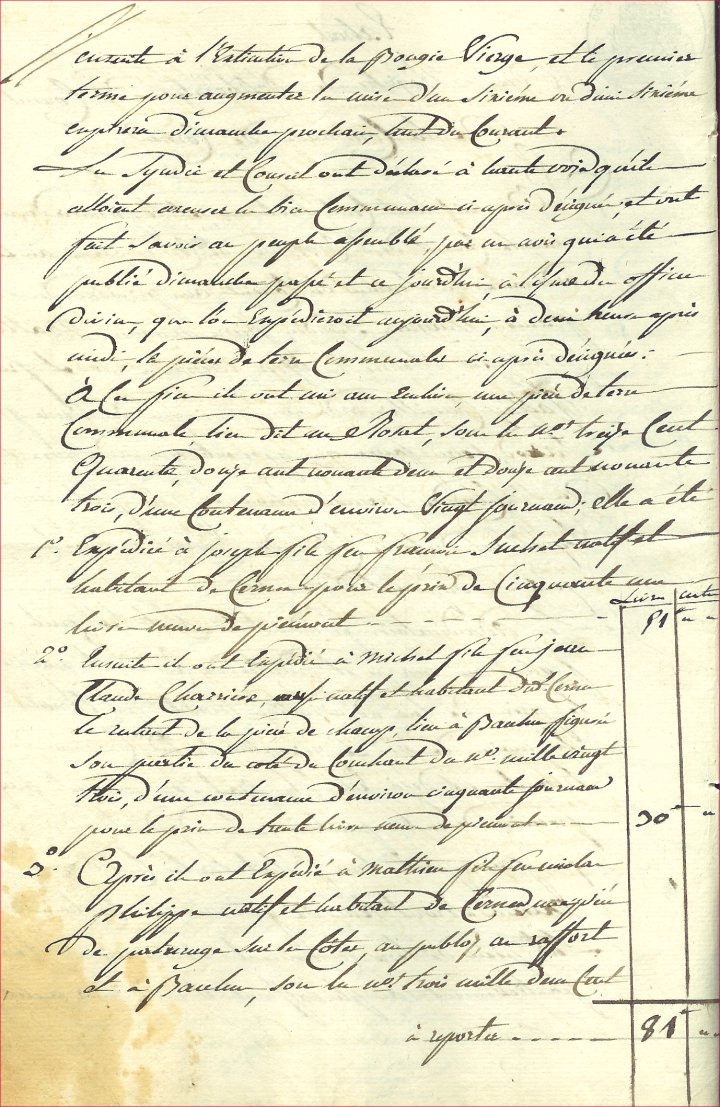 ensuite à l'Extinction de la Bougie Vierge, et le premier
terme pour augmenter la mise d'un sixiéme ou demi sixiéme
expirera dimanche prochain, huit du Courant.
Les Syndic et Conseil ont déclaré à haute voix qu'ils
alloient acenser les biens Communaux ci après désignés, et ont
fait savoir au peuple assemblé, par un avis qui a été
publié dimanche passé et ce jourd'hui à l'issue des offices
divins, que l'on Expédieroit aujourd'hui, à deux heures après
midi, les pièces de terre Communales ci après désignées.
À Ces fins ils ont mis aux Enchères une pièce de terre
Communale, lieu dit au, sous les nos. treize Cent
Quarante, douze cent nonante deux et douze cent nonante
trois, d'une Contenance d'environ Vingt journaux; elle a été
1o. Expédiée à joseph fils feu françois Suchet natif et
habitant de Cernex pour le prix de Cinquante une
livres neuves de piémont
Livres cents
51 " "
2o. Ensuite ils ont Expédié à Michel fils feu jean
Claude Charrière, aussi natif et habitant dud. Cernex
le restant de la pièce de champ, lieu à figuré
son partie du coté du Couchant du no. mille vingt
trois, d'une contenance d'environ cinquante journaux
pour le prix de trente livres neuves de piémont
30 " "
3o. Après ils ont Expédié à Mathieu fils feu nicolas
Philippe natif et habitant de Cernex une pièce
de paturage sur les Côtes, au, au raffort
et à, sous les nos. trois mille deux Cent
à reporter 81 " "